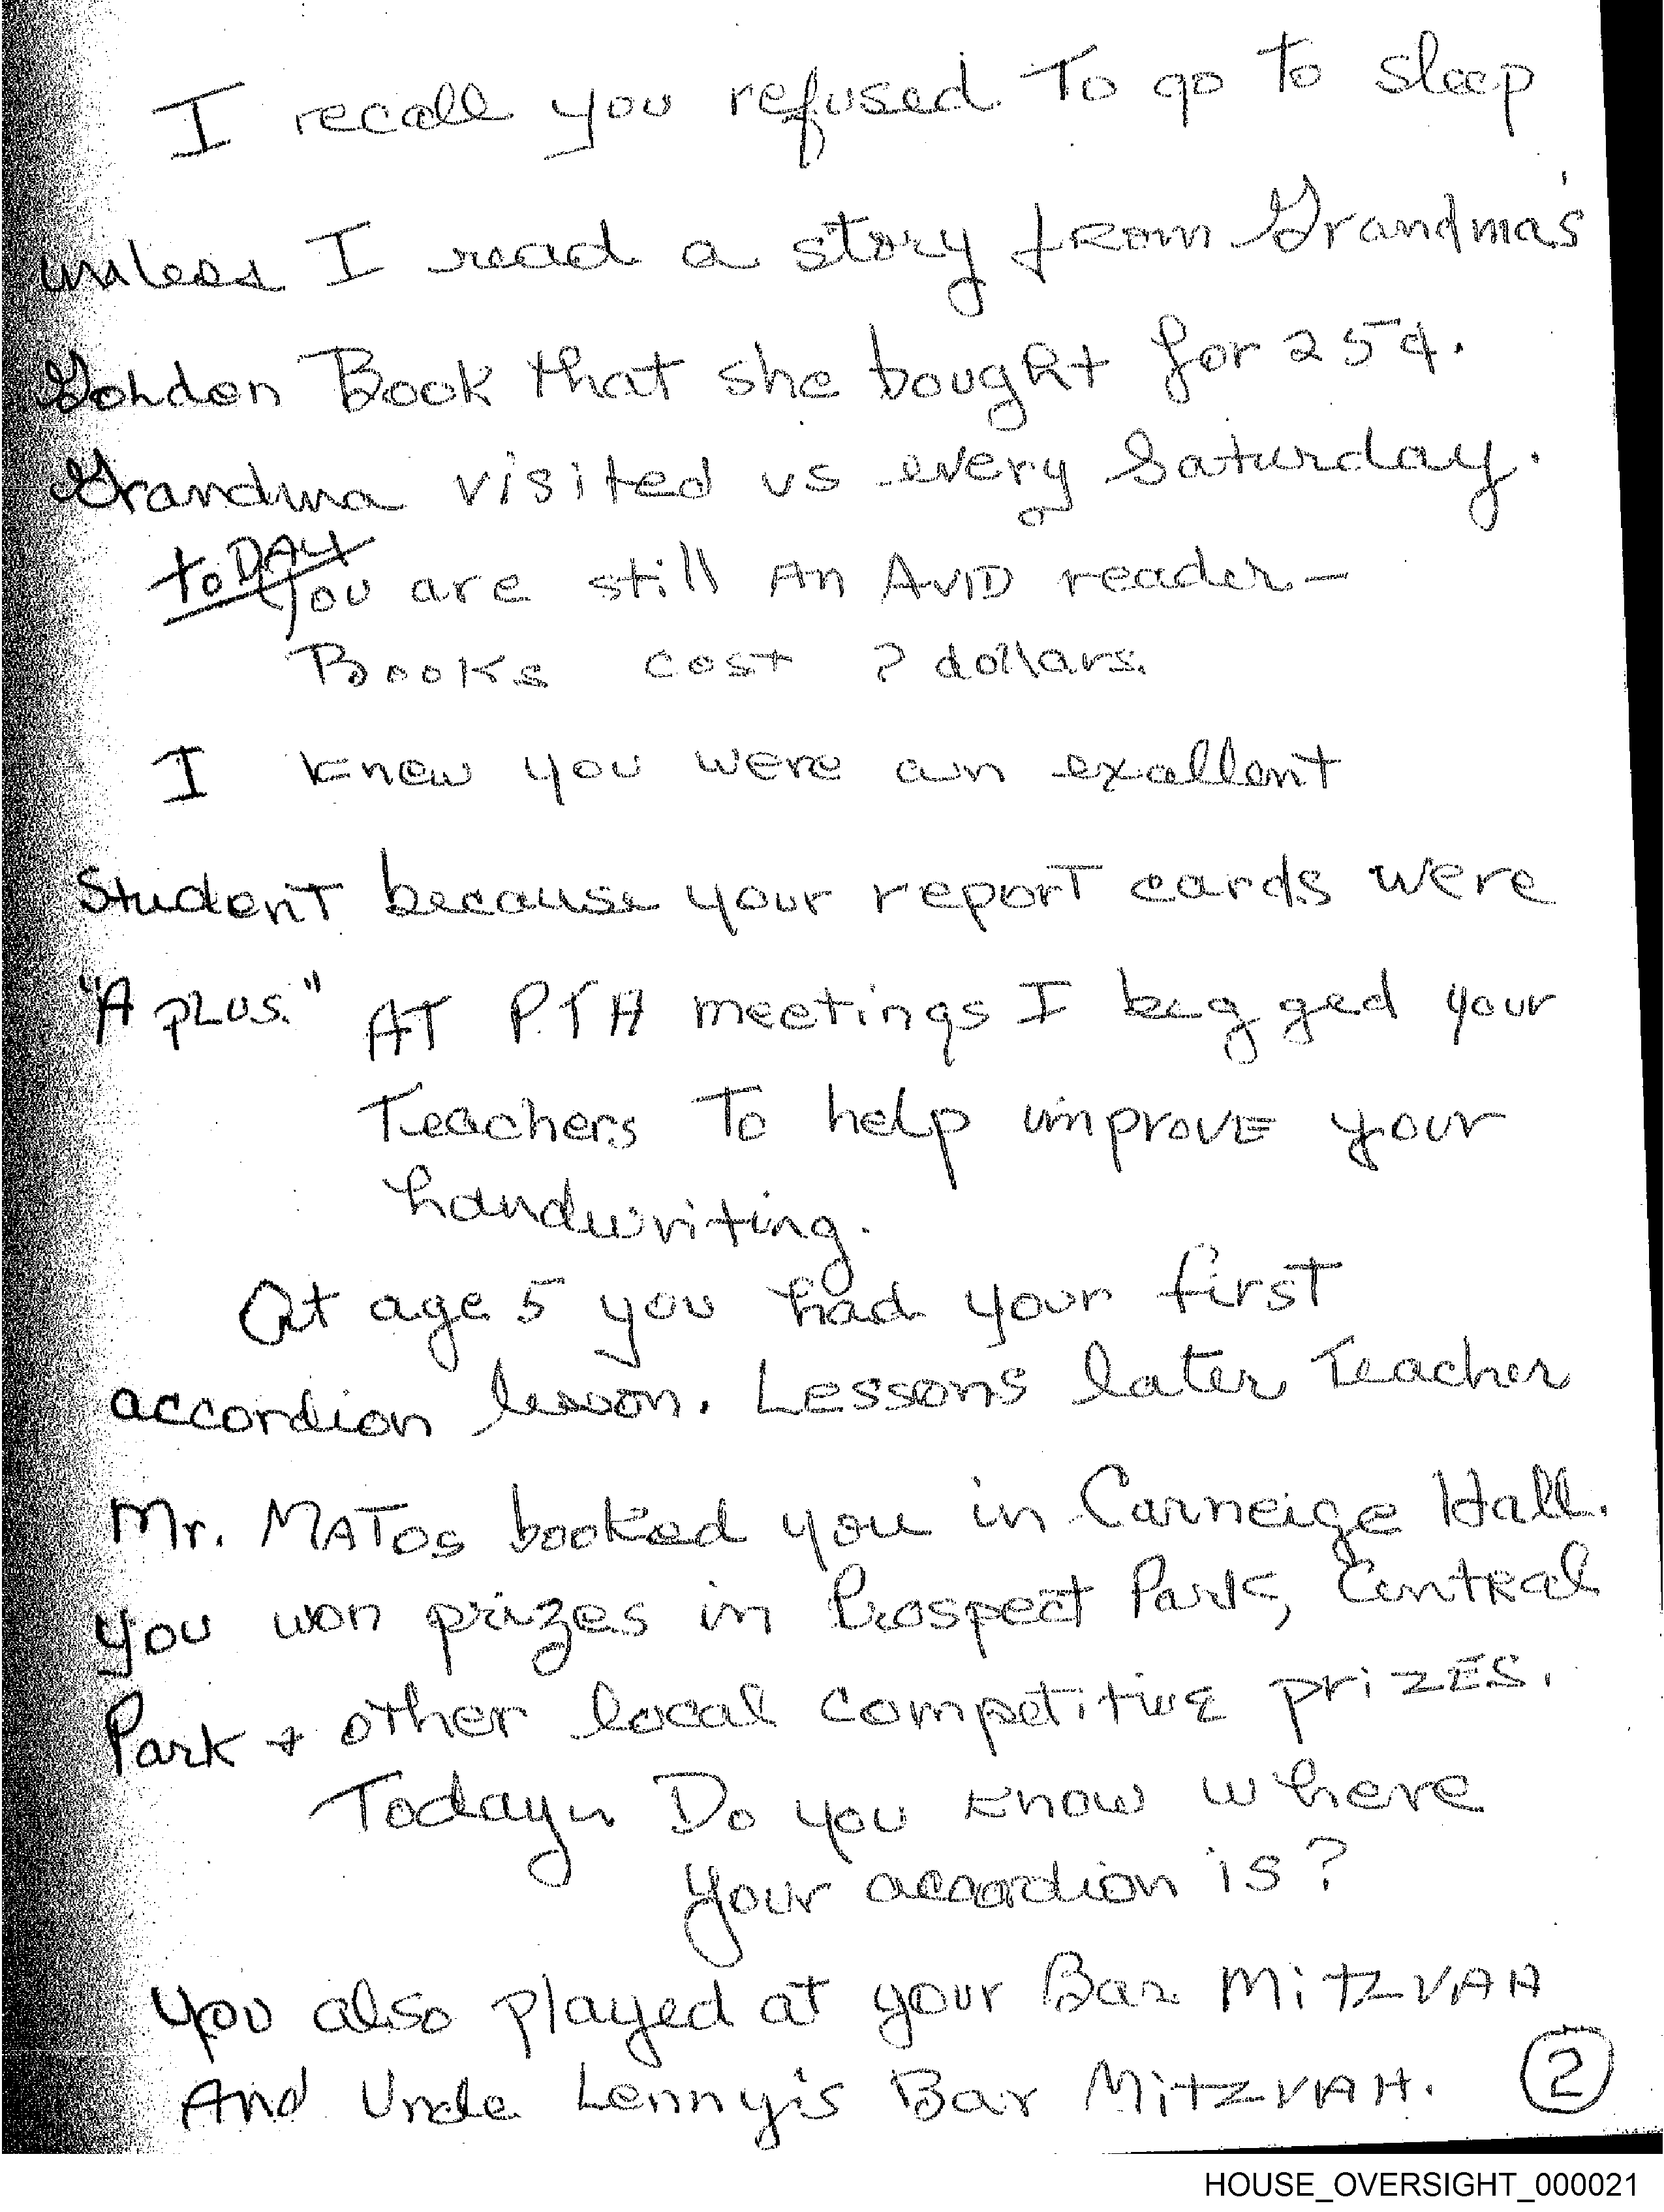 I recall you refused To go to sleep
unless I read a story from Grandma's
Golden Book that she bought for 25¢.
Grandma visited us every Saturday.
toDAY
You are still An AVID reader—
Books cost ? dollars.
I knew you were an exallent
Student because your report cards were
"A PLUS." AT P.T.A meetings I begged your
Teachers To help improve your
handwriting.
At age 5 you had your first
accordion lesson. Lessons later Teacher
Mr. MATos booked you in Carneige Hall.
You won prizes in Prospect Park, Central
Park + other local competitive prizes.
Today, Do you know where
your accordion is?
You also played at your Bar MitzVAH
And Uncle Lenny's Bar MitzVAH. 2
HOUSE_OVERSIGHT_000021